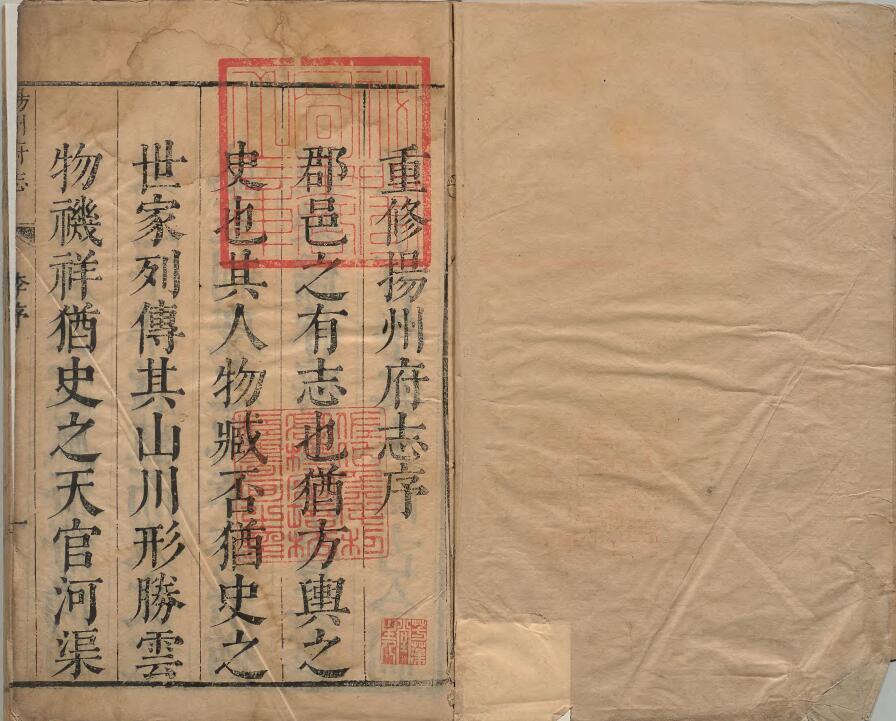 重修揚州府志序
郡邑之有志也猶方輿之
史也其人物臧否猶史之
世家列傳其山川形勝雲
物禨祥猶史之天官河渠
揚州府志
李序
一